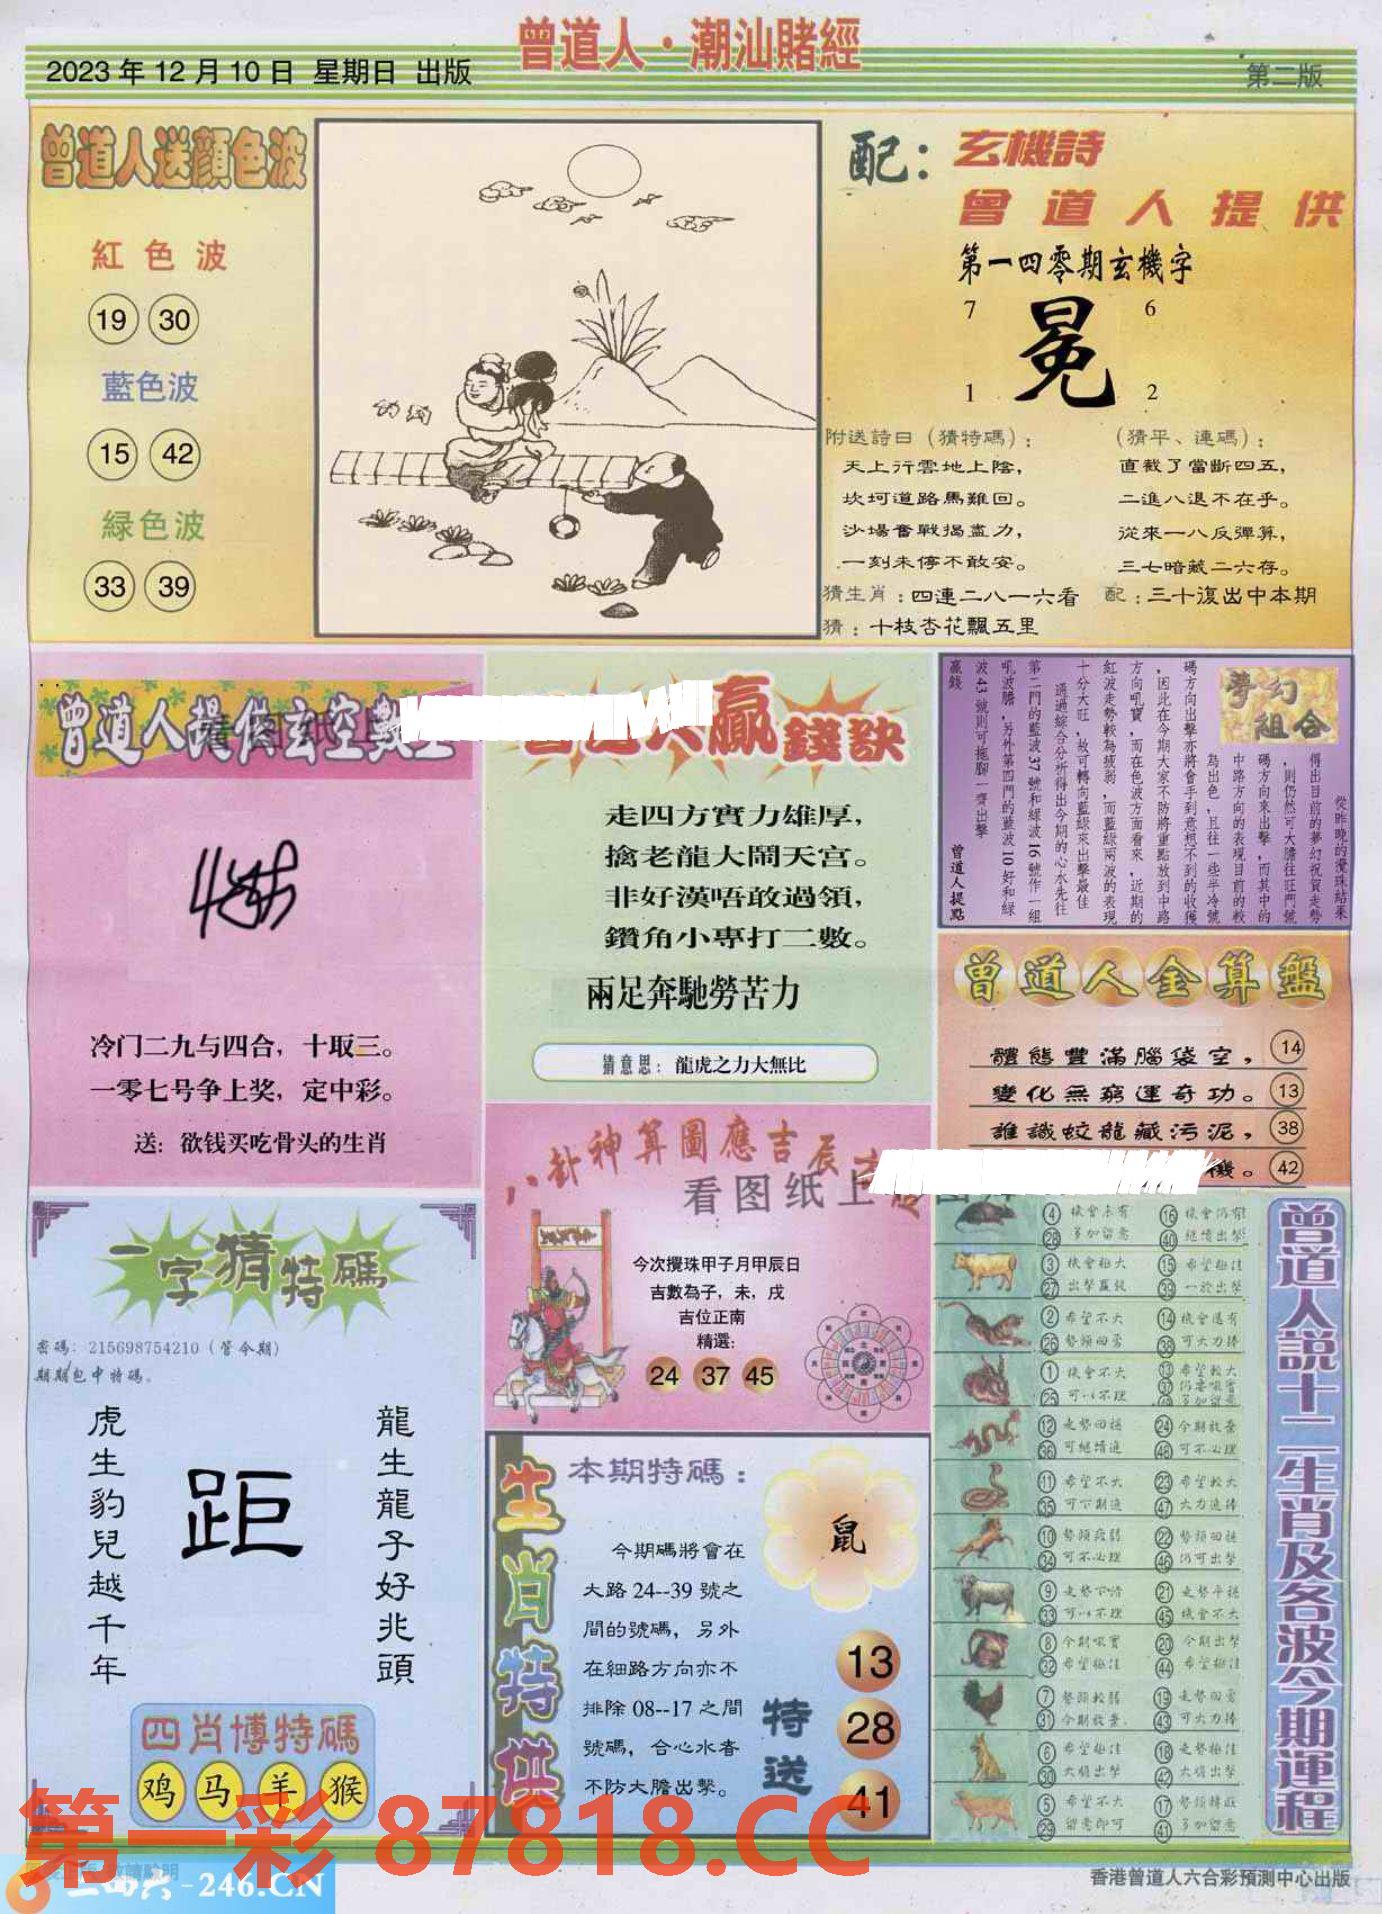 曾道人·潮汕賭經
2023年12月10日 星期日 出版
第二版
曾道人送顏色波
紅色波
19 30
藍色波
15 42
緑色波
33 39
配：玄機詩
曾道人提供
第一四零期玄機字
7 6
冕
1 2
附送詩曰（猜特碼）：
天上行雲地上陰，
坎坷道路馬難回。
沙場奮戰揭盡力，
一刻未停不敢安。
（猜平、連碼）：
直截了當斷四五，
二進八退不在乎。
從來一八反彈算，
三七暗藏二六存。
猜生肖：四連二八一六看
配：三十復出中本期
猜：十枝杏花飄五里
曾道人提供玄空數
冷门二九与四合，十取三。
一零七号争上奖，定中彩。
送：欲钱买吃骨头的生肖
贏錢訣
走四方實力雄厚，
擒老龍大鬧天宫。
非好漢唔敢過領，
鑽角小專打二數。
兩足奔馳勞苦力
猜意思：龍虎之力大無比
夢幻組合
從昨晚的攪珠結果
得出目前的夢幻祝賀走勢
，則仍然可大膽往旺門號
碼方向來出擊，而其中的
中路方向的表現目前的較
為出色，且往一些半冷號
碼方向出擊亦將會手到意想不到的收獲
，因此在今期大家不防將重點放到中路
方向吼寶，而在色波方面看來，近期的
紅波走勢較為疲弱，而藍綠兩波的表現
十分大旺，故可轉向藍綠來出擊最佳
通過綜合分析得出今期的心水先往
第二門的藍波37號和綠波16號作一組
吼波膽，另外第四門的藍波10好和綠
波43號則可拖腳一齊出擊
贏錢
曾道人提點
曾道人金算盤
體態豐滿腦袋空， 14
變化無窮運奇功。 13
誰識蛟龍藏污泥， 38
機。 42
八卦神算圖應吉辰
看图纸上
今次攪珠甲子月甲辰日
吉數為子，未，戌
吉位正南
精選：
24 37 45
一字猜特碼
密碼：215698754210（管今期）
期期包中特碼。
龍生龍子好兆頭
距
虎生豹兒越千年
四肖博特碼
鸡 马 羊 猴
生肖特供
本期特碼：
鼠
今期碼將會在
大路24--39號之
間的號碼，另外
在細路方向亦不
排除08--17之間
號碼，合心水者
不防大膽出擊。
特送
13
28
41
曾道人説十二生肖及各波今期運程
4 機會未有 16 機會仍有
28 多加留意 40 繼續出擊
3 機會極大 15 希望極佳
27 出擊贏錢 39 一於出擊
2 希望不大 14 機會還有
26 勢頭回勇 38 可大力捧
1 機會不大 13 希望較大
25 可以不理
12 走勢回穩 24 今期放棄
36 可繼續追 48 可不必理
11 希望不大 23 希望較大
35 可下期追 47 大力追捧
10 勢頭疲弱 22 勢頭回穩
34 可不必理 46 仍可出擊
9 走勢下滑 21 走勢平穩
33 可以不理 45 機會不大
8 今期吼寶 20 今期出擊
32 希望極佳 44 希望極佳
7 勢頭較弱 19 走勢回勇
31 今期放棄 43 可大力捧
6 希望極佳 18 走勢極佳
30 大膽出擊 42 大膽出擊
5 希望不大 17 勢頭轉旺
29 留意即可 41 多加留意
第一彩 87818.CC
二四六-246.CN
香港曾道人六合彩預測中心出版